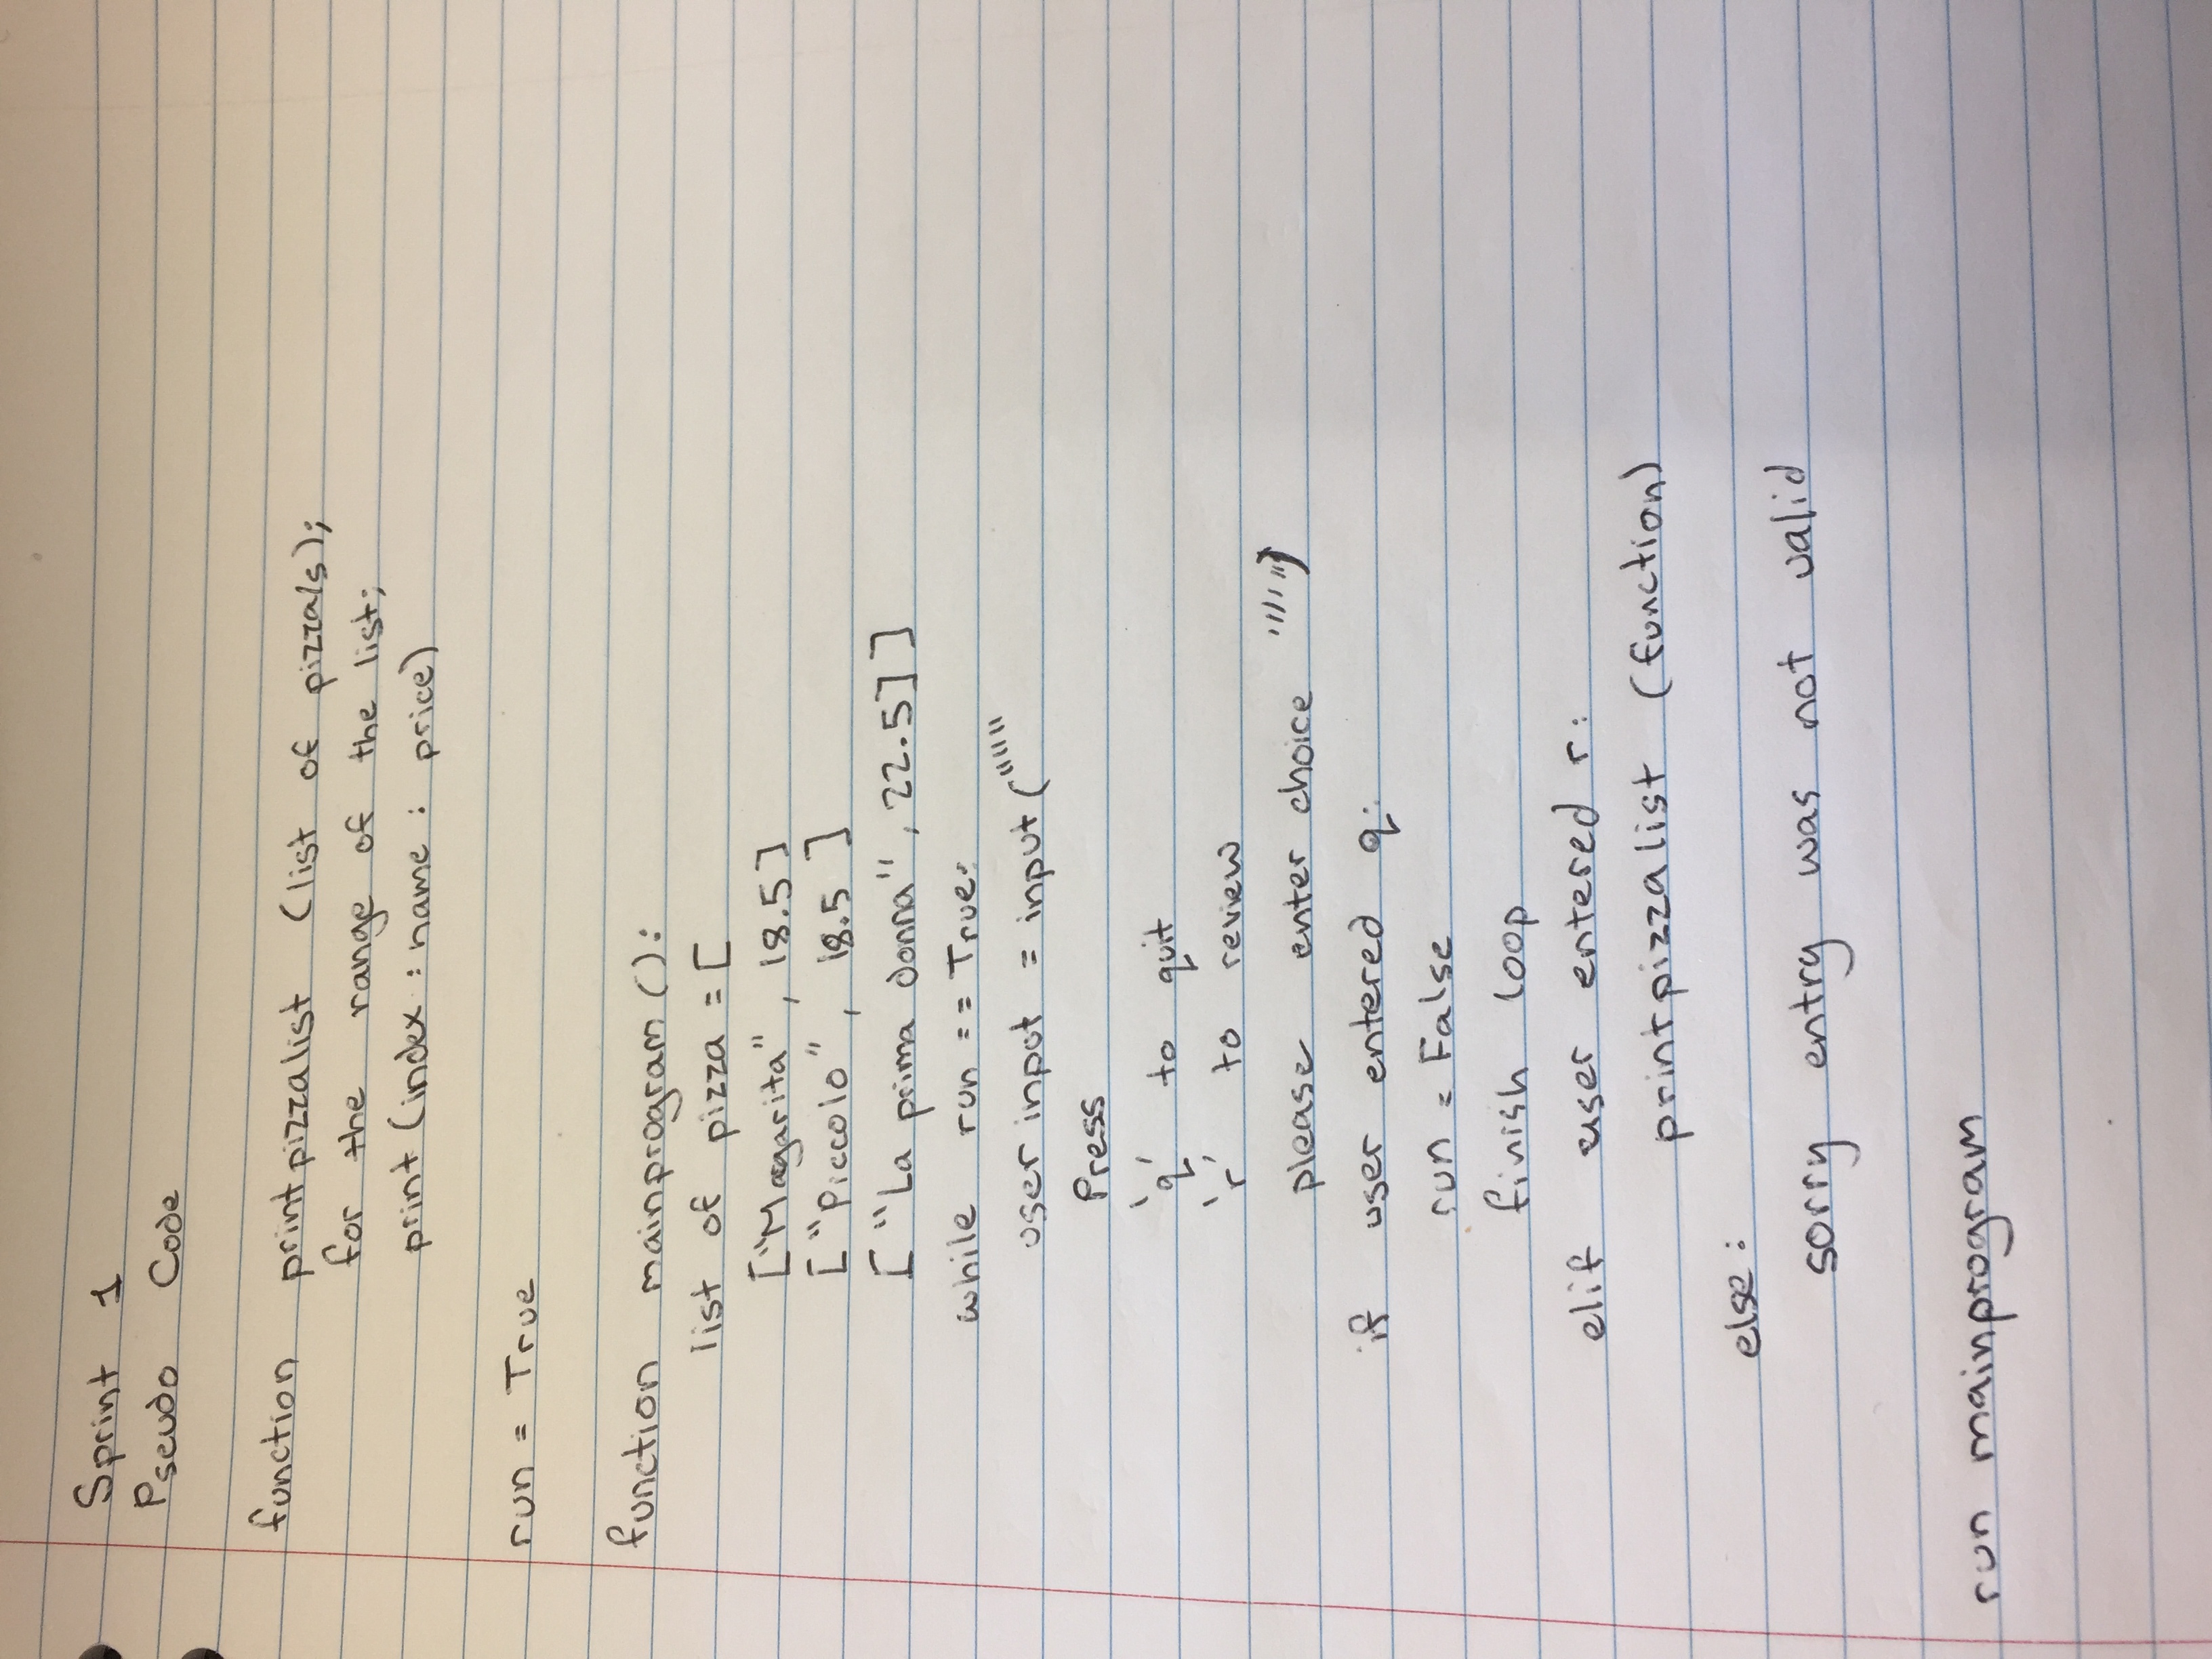 Sprint 1
Pseudo Code
function printpizzalist (list of pizza/s);
for the range of the list;
print (index : name : price)
run = True
function mainprogram ():
list of pizza = [
["Magarita", 18.5]
["Piccolo", 18.5 ]
["La prima donna", 22.5] ]
while run == True:
user input = input ("""
Press
'q' to quit
'r' to review
please enter choice """)
if user entered q:
run = False
finish loop
elif user entered r:
printpizzalist (function)
else:
sorry entry was not valid
run mainprogram